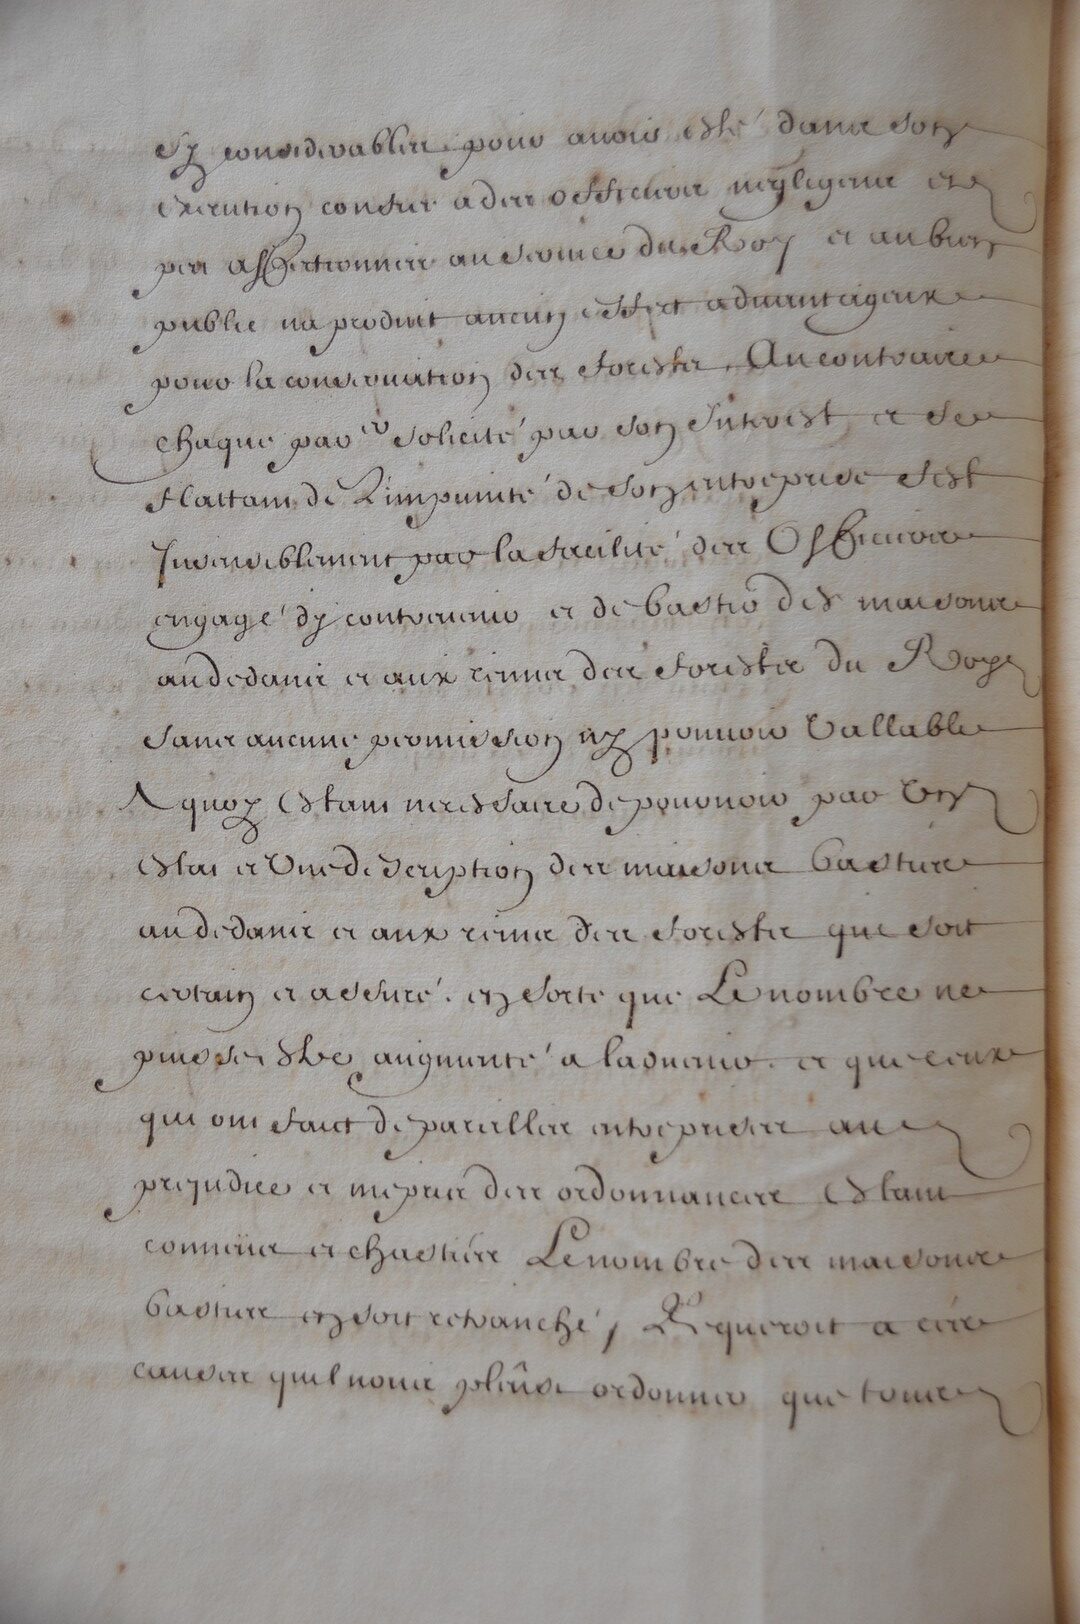 sy considerables pour avoir esté dans son
execution confiée a des officiers negligens et
peu affectionnez au service du Roy et au bien
public na produit aucun effect advantageux
pour la conservation des forests, Au contraire
chaque par er solicité par son Interest et se
flattant de Limpunité de son entreprise sest
Insensiblement par la facilité des Officiers
engagé dy contrevenir et de bastir des maisons
au dedans et aux reins des forests du Roy
sans aucune permission ny pouvoir vallable
A quoy estant necessaire de pourvoir par un
estat et une description des maisons basties
au dedans et aux reins des forests qui soit
certain et asseuré. en sorte que Le nombre ne
puisse estre augmenté a ladvenir. et que ceux
qui ont faict de pareilles entreprises au
prejudice et mepris des ordonnances estant
connus et chastiés Le nombre des maisons
basties en soit retranché, Requeroit a ces
causes quil nous pleûst ordonner que tous